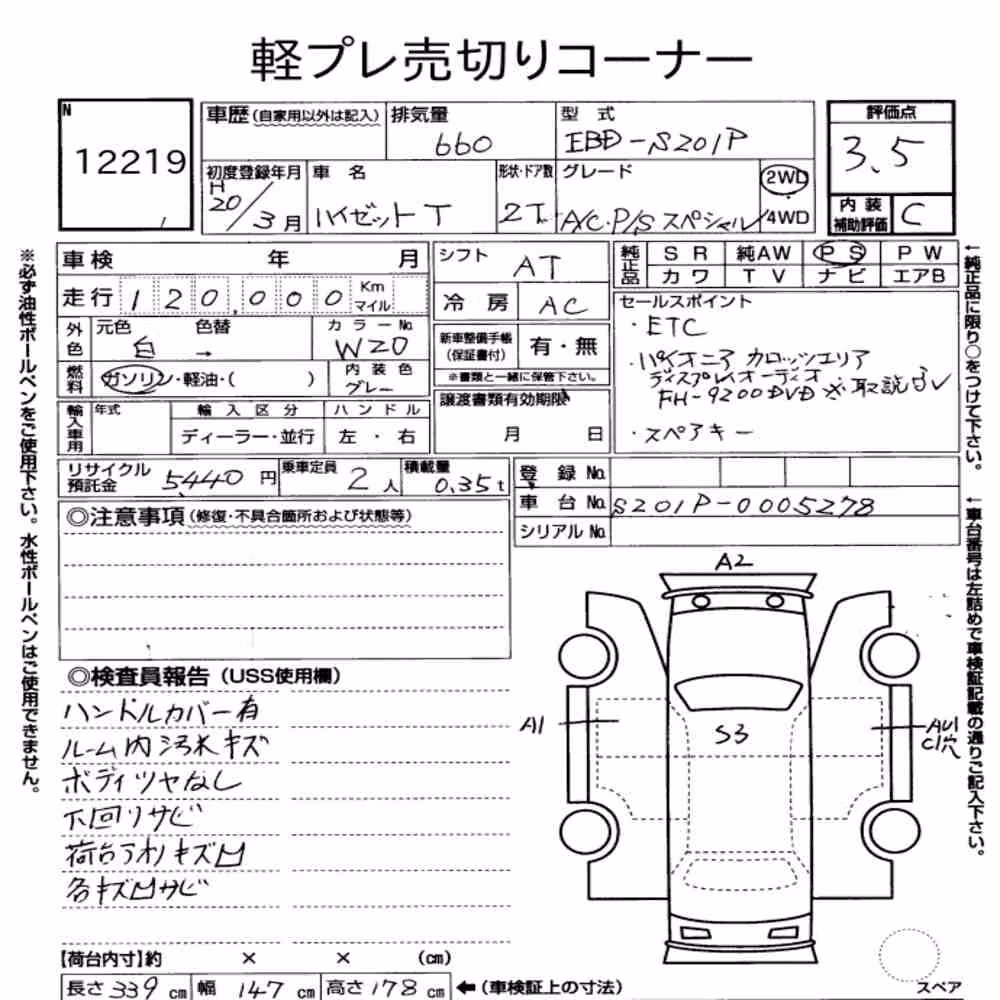 軽プレ売切りコーナー
N
12219
車歴(自家用以外は記入) 排気量 660
型式 EBD-S201P
評価点 3.5
初度登録年月 H20/3月
車名 ハイゼットT
形状・ドア数 2T
グレード A/C・P/Sスペシャル
2WD/4WD
内装補助評価 C
車検 年 月
走行 120,000 Km マイル
外色 元色 白 色替 →
カラーNo. W20
燃料 ガソリン・軽油・( )
内装色 グレー
輸入車用 年式 輸入区分 ハンドル
ディーラー・並行 左・右
シフト AT
冷房 AC
新車整備手帳(保証書付) 有・無
※書類と一緒に保管下さい。
譲渡書類有効期限
月 日
純正品 SR 純AW PS PW
カワ TV ナビ エアB
セールスポイント
・ETC
・パイオニア カロッツェリア
ディスプレイオーディオ
FH-9200DVD ※取説なし
・スペアキー
リサイクル預託金 5,440円
乗車定員 2人
積載量 0.35t
登録No.
車台No. S201P-0005278
シリアルNo.
◎注意事項(修復・不具合箇所および状態等)
◎検査員報告(USS使用欄)
ハンドルカバー有
ルーム内汚れキズ
ボディツヤなし
下回りサビ
荷台アオリキズ凹
各キズ凹サビ
A2
A1
S3
AU1
C1穴
【荷台内寸】約 × × (cm)
長さ339cm 幅147cm 高さ178cm ←(車検証上の寸法)
スペア
※必ず油性ボールペンをご使用下さい。水性ボールペンはご使用できません。
←純正品に限り○をつけて下さい。
←車台番号は左詰めで車検証記載の通りご記入下さい。